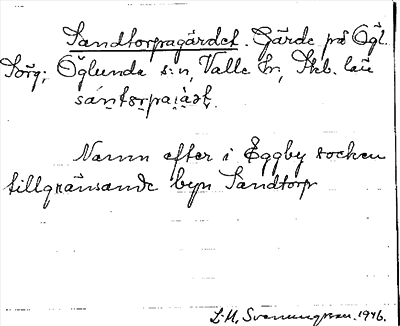 Sandtorpagärdet. Gärde på Ögl.
Torg; Öglunda s:n, Valle hr, Skb. län
Namn efter i Eggby socken
tillgränsande byn Sandtorp
L.M. Svenungsson. 1946.